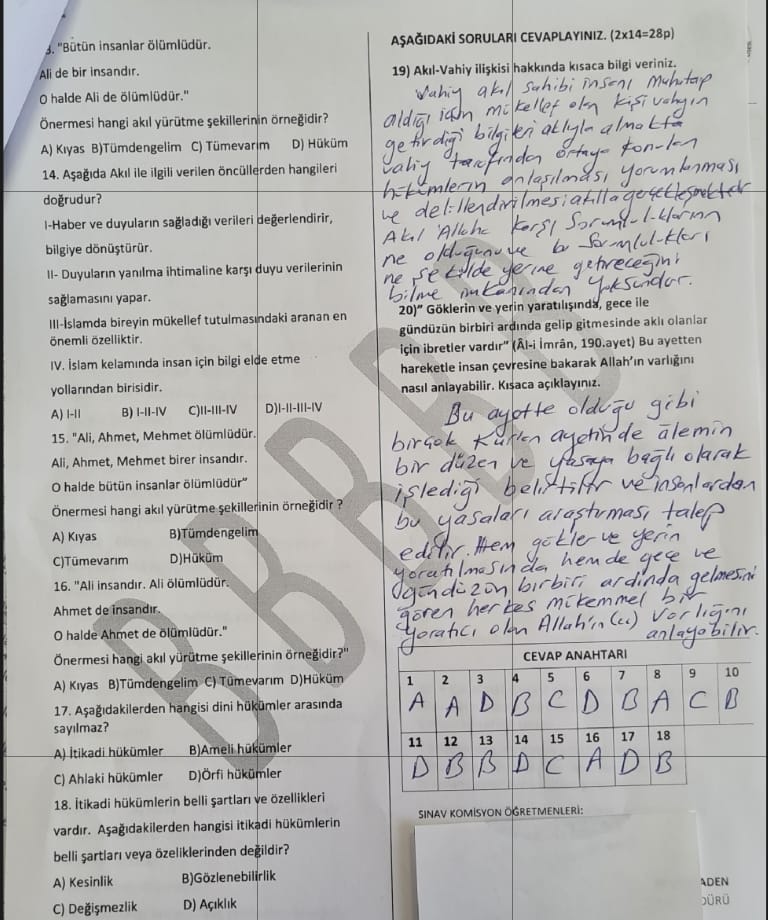 3. "Bütün insanlar ölümlüdür.
Ali de bir insandır.
O halde Ali de ölümlüdür."
Önermesi hangi akıl yürütme şekillerinin örneğidir?
A) Kıyas B)Tümdengelim C) Tümevarım D) Hüküm
14. Aşağıda Akıl ile ilgili verilen öncüllerden hangileri
doğrudur?
I-Haber ve duyuların sağladığı verileri değerlendirir,
bilgiye dönüştürür.
II- Duyuların yanılma ihtimaline karşı duyu verilerinin
sağlamasını yapar.
III-İslamda bireyin mükellef tutulmasındaki aranan en
önemli özelliktir.
IV. İslam kelamında insan için bilgi elde etme
yollarından birisidir.
A) I-II B) I-II-IV C)II-III-IV D)I-II-III-IV
15. "Ali, Ahmet, Mehmet ölümlüdür.
Ali, Ahmet, Mehmet birer insandır.
O halde bütün insanlar ölümlüdür"
Önermesi hangi akıl yürütme şekillerinin örneğidir ?
A) Kıyas B)Tümdengelim
C)Tümevarım D)Hüküm
16. "Ali insandır. Ali ölümlüdür.
Ahmet de insandır.
O halde Ahmet de ölümlüdür."
Önermesi hangi akıl yürütme şekillerinin örneğidir?"
A) Kıyas B)Tümdengelim C) Tümevarım D)Hüküm
17. Aşağıdakilerden hangisi dini hükümler arasında
sayılmaz?
A) İtikadi hükümler B)Ameli hükümler
C) Ahlaki hükümler D)Örfi hükümler
18. İtikadi hükümlerin belli şartları ve özellikleri
vardır. Aşağıdakilerden hangisi itikadi hükümlerin
belli şartları veya özeliklerinden değildir?
A) Kesinlik B)Gözlenebilirlik
C) Değişmezlik D) Açıklık
AŞAĞIDAKİ SORULARI CEVAPLAYINIZ. (2x14=28p)
19) Akıl-Vahiy ilişkisi hakkında kısaca bilgi veriniz.
Vahiy akıl sahibi insanı muhatap
aldığı için mükellef olan kişi vahyin
getirdiği bilgileri aklıyla almakta
vahiy tarafından ortaya konulan
hükümlerin anlaşılması yorumlanması
ve delillendirilmesi akılla gerçekleşmektedir
Akıl Allaha karşı sorumluluklarının
ne olduğunu ve bu sorumlulukları
ne şekilde yerine getireceğini
bilme imkanından yoksundur.
20)" Göklerin ve yerin yaratılışında, gece ile
gündüzün birbiri ardında gelip gitmesinde aklı olanlar
için ibretler vardır" (Âl-i İmrân, 190.ayet) Bu ayetten
hareketle insan çevresine bakarak Allah'ın varlığını
nasıl anlayabilir. Kısaca açıklayınız.
Bu ayette olduğu gibi
birçok Kur'an ayetinde âlemin
bir düzen ve yasaya bağlı olarak
işlediği belirtilir ve insanlardan
bu yasaları araştırması talep
edilir. Hem gökler ve yerin
yaratılmasında hem de gece ve
gündüzün birbiri ardında gelmesini
gören herkes mükemmel bir
yaratıcı olan Allah'ın (cc) varlığını
anlayabilir.
CEVAP ANAHTARI
1 2 3 4 5 6 7 8 9 10
A A D B C D B A C B
11 12 13 14 15 16 17 18
D B B D C A D B
SINAV KOMİSYON ÖĞRETMENLERİ:
ADEN
DÜRÜ
BBBBB